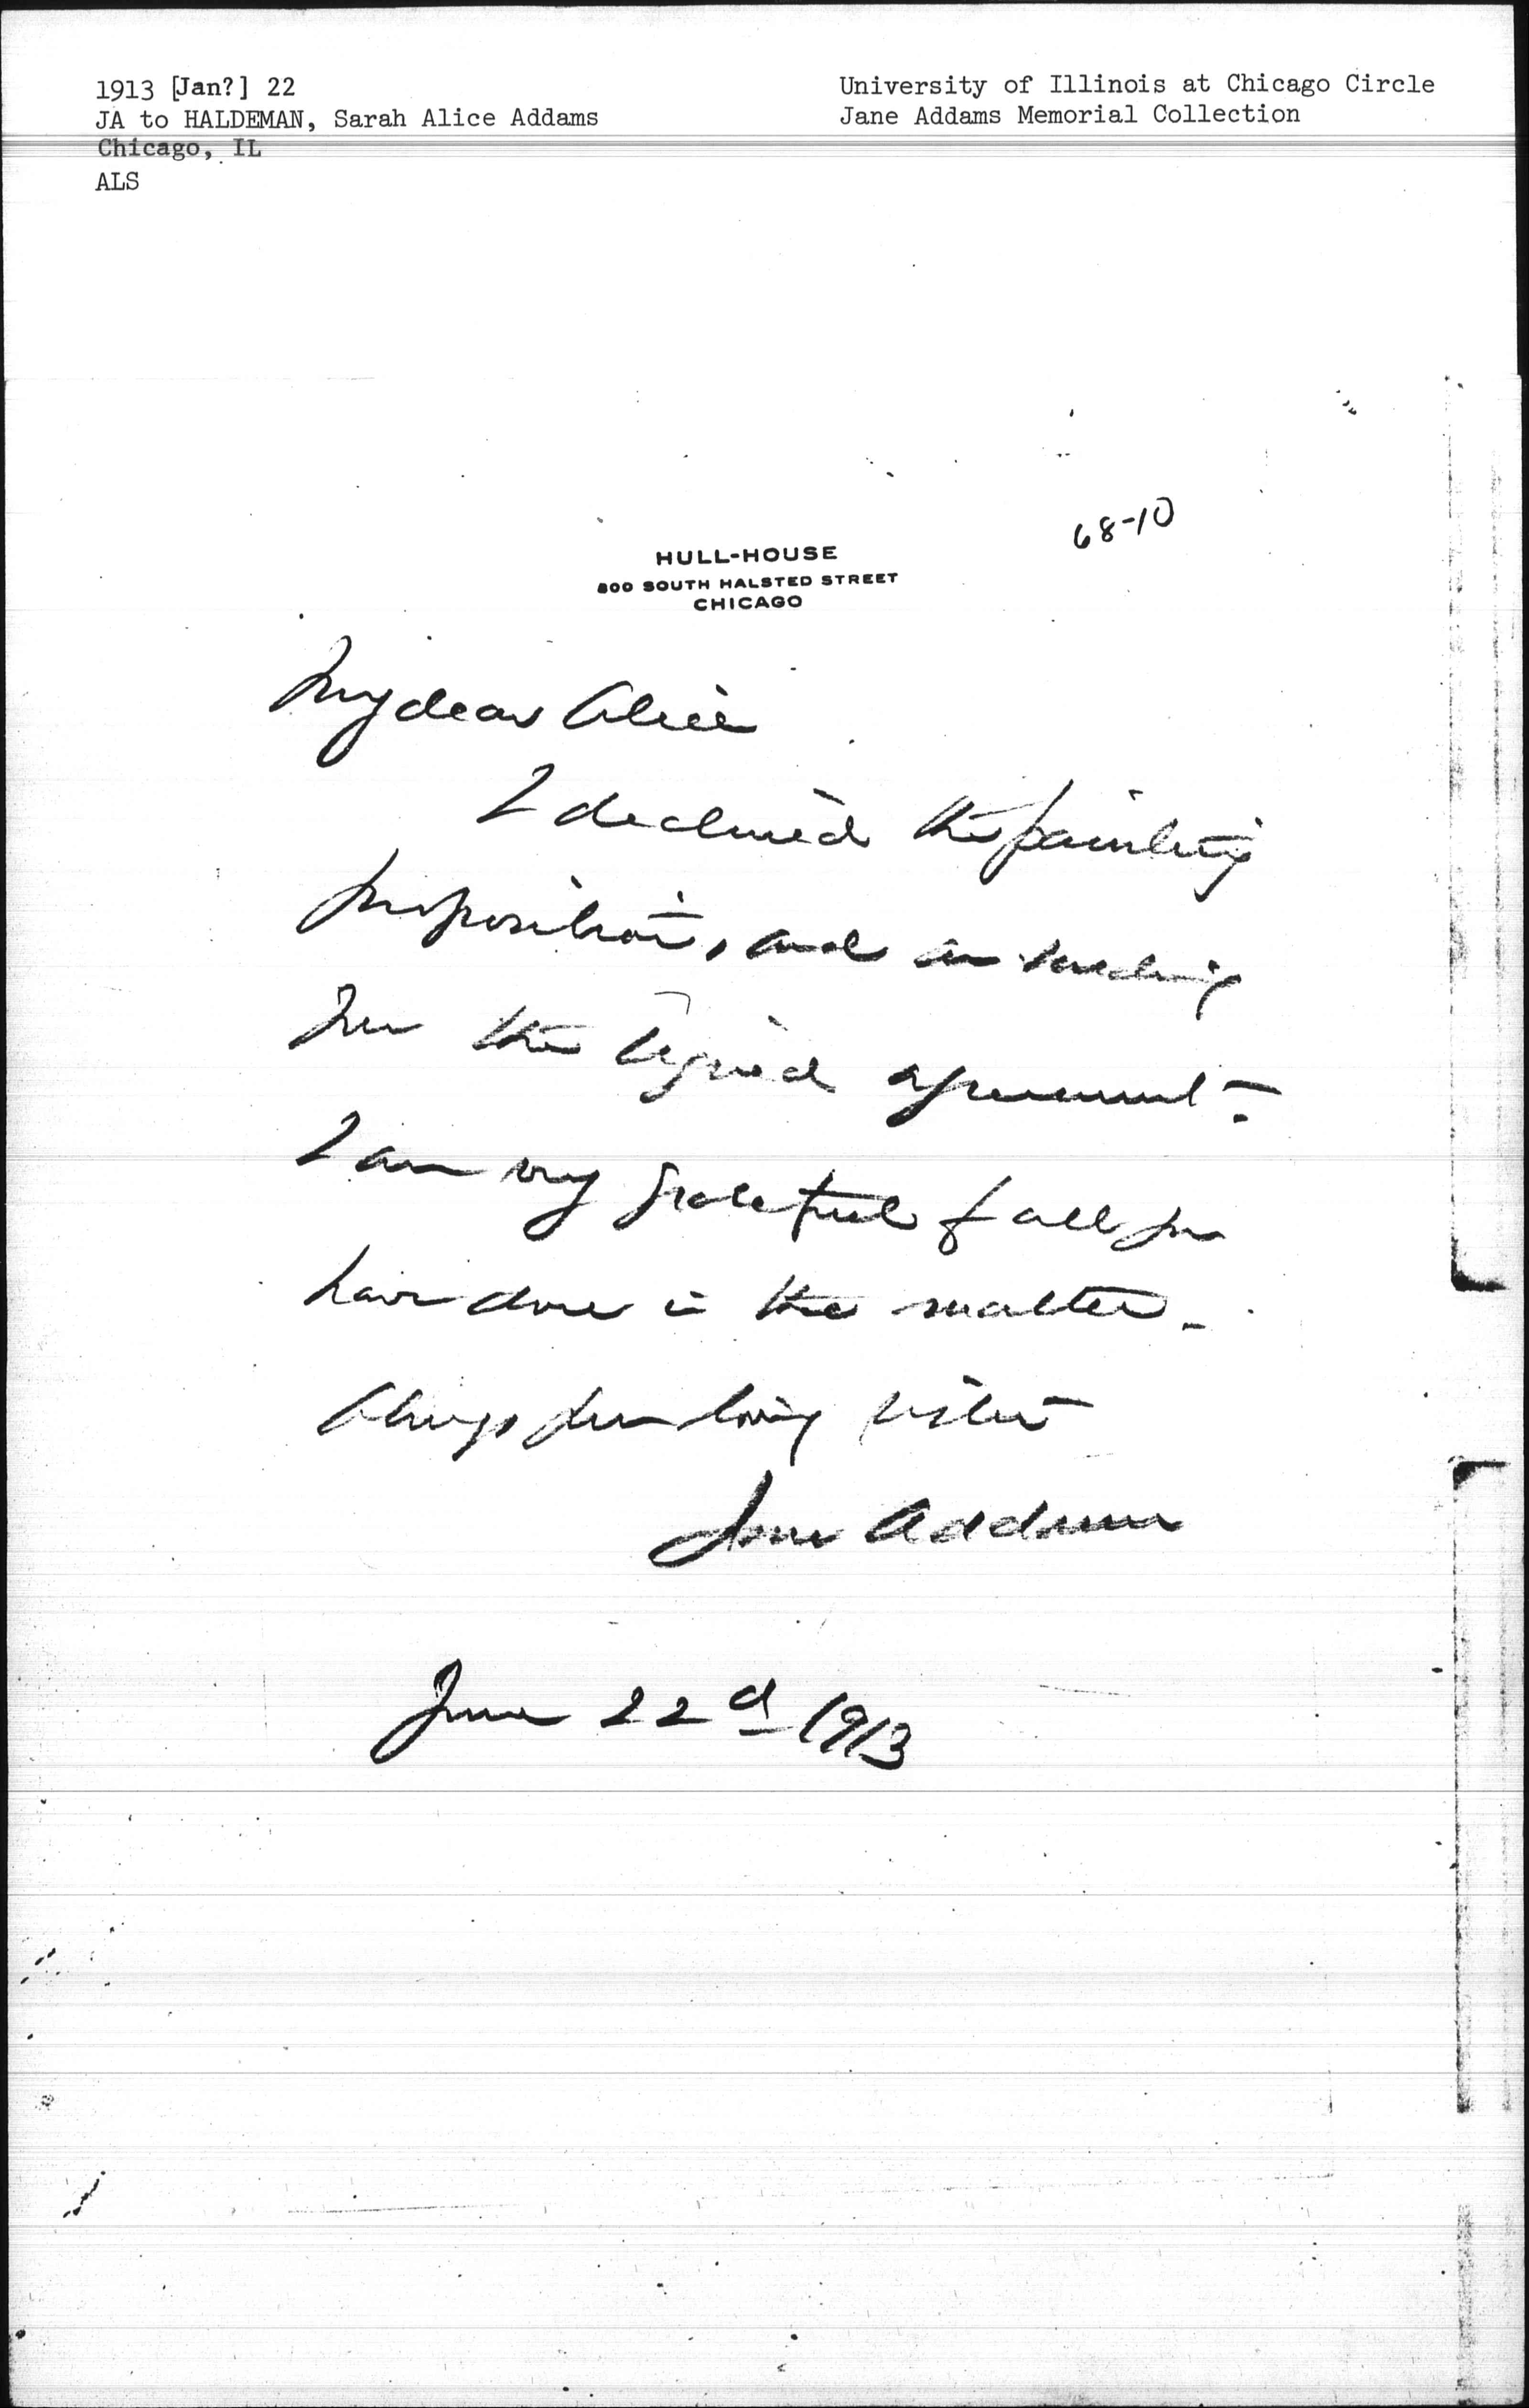 1913 [Jan?] 22
JA to HALDEMAN, Sarah Alice Addams
Chicago, IL
ALS
University of Illinois at Chicago Circle
Jane Addams Memorial Collection
68-10
HULL-HOUSE
800 SOUTH HALSTED STREET
CHICAGO
My dear Alice
I declined the painting
proposition, and am sending
you the signed agreement.
I am very grateful for all you
have done in the matter.
Always your loving sister
Jane Addams
June 22d 1913